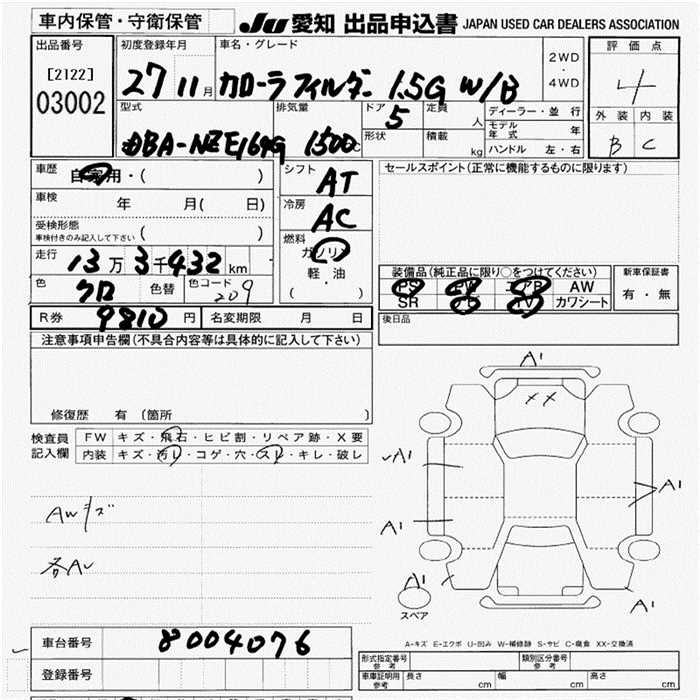 車内保管・守衛保管 JU 愛知 出品申込書 JAPAN USED CAR DEALERS ASSOCIATION
出品番号
[2122]
03002
初度登録年月
27 11 月
車名・グレード
カローラフィルダー 1.5G W/B
2WD
・
4WD
評価点
4
外装 内装
B C
型式
DBA-NZE164G
排気量
1500
ドア
5
形状
定員
人
積載
kg
ディーラー・並行
モデル年式 年
ハンドル 左・右
車歴
自家用・( )
車検
年 月( 日)
受検形態
車検付きのみ記入して下さい ( )
走行
13万3千432 km
色
クロ
色替
色コード
209
シフト
AT
冷房
AC
燃料
ガソリン
軽・油
( )
セールスポイント(正常に機能するものに限ります)
装備品(純正品に限り○をつけてください)
PS PW AB AW
SR TV カワシート
新車保証書
有・無
R券 9810 円
名変期限 月 日
後日品
注意事項申告欄(不具合内容等は具体的に記入して下さい)
修復歴 有 (箇所 )
検査員
記入欄
FW キズ・飛石・ヒビ割・リペア跡・X要
内装 キズ・汚レ・コゲ・穴・スレ・キレ・破レ
AWキズ
各AU
A1
XX
A1
A1
A1
A1
A1
スペア
A-キズ E-エクボ U-凹み W-補修跡 S-サビ C-腐食 XX-交換済
車台番号 8004076
登録番号
形式指定番号
参考
類別区分番号
参考
車庫証明用
参考
長さ cm 幅 cm 高さ cm